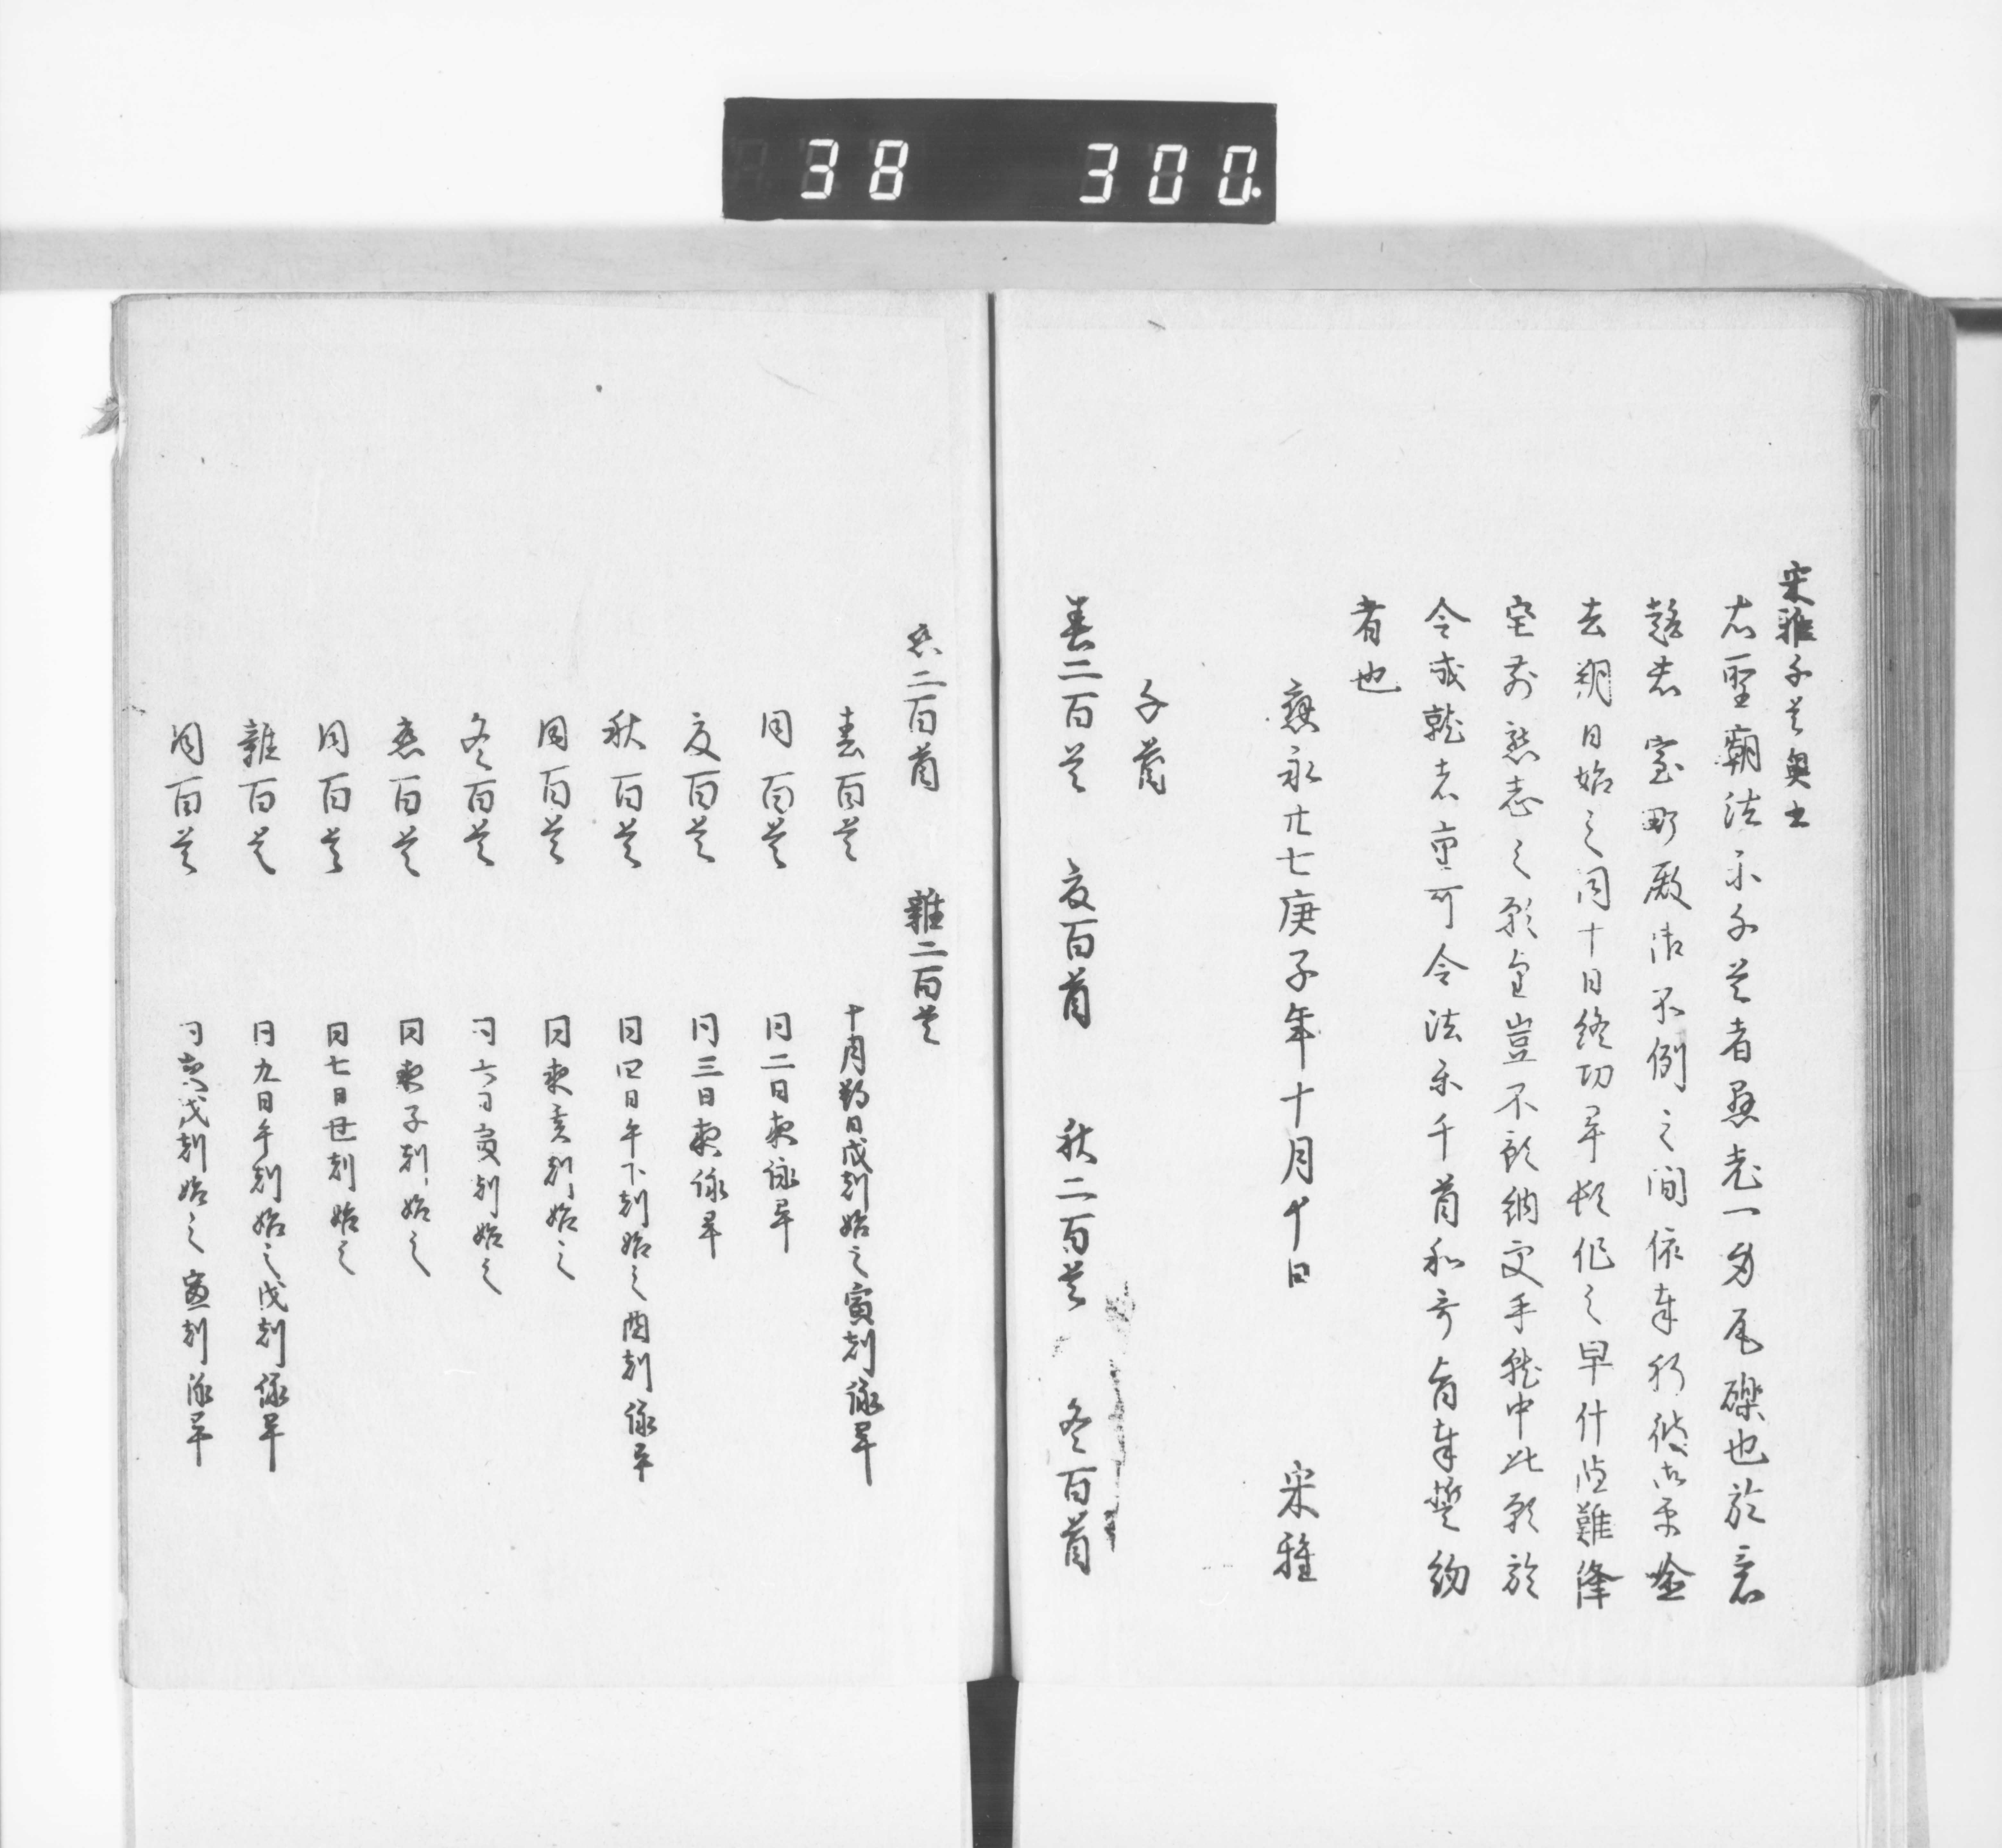 38 300.
宋雅千首奥書
右聖廟法楽千首者愚老一身瓦礫也於意
趣者室町殿御不例之間依奉祈彼御平愈
去朔日始之同十日終功畢頓作之早什雖難
室前懇志之願望豈不納受乎就中此願於
令成就者重可令法楽千首和哥旨奉誓約
者也
応永廿七庚子年十月十日 宋雅
千首
春二百首 夏百首 秋二百首 冬百首
恋二百首 雑二百首
春百首 十月朔日戌刻始之寅刻詠畢
同百首 同二日夜詠畢
夏百首 同三日夜詠畢
秋百首 同四日午下刻始之酉刻詠畢
同百首 同夜亥刻始之
冬百首 同六日寅刻始之
恋百首 同夜子刻始之
同百首 同七日丑刻始之
雑百首 同九日午刻始之戌刻詠畢
同百首 同夜戌刻始之寅刻詠畢